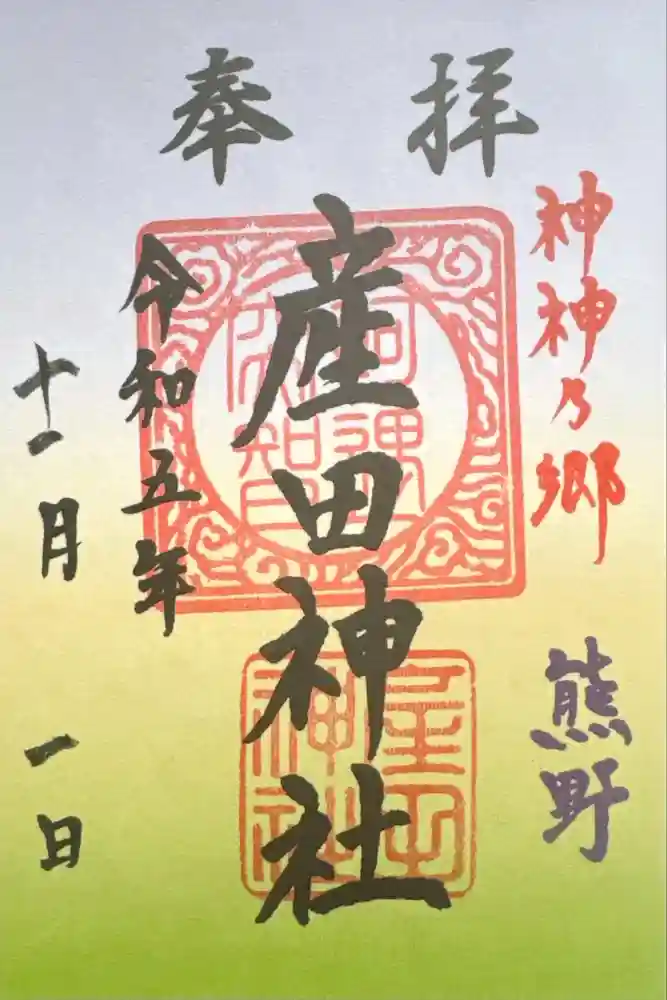 奉拝
神神乃郷
熊野
産田神社
令和五年
十一月一日
産田神社